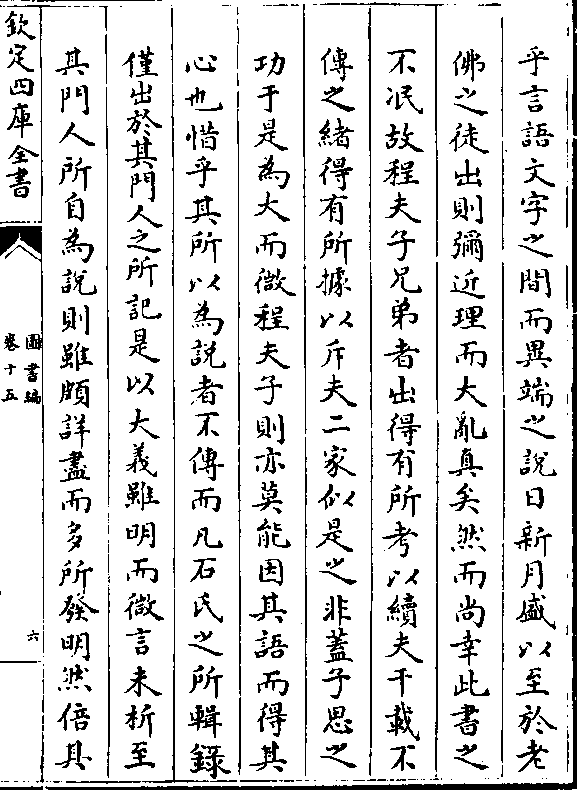 乎言語文字之間而異端之說日新月盛以至於老
佛之徒出則彌近理而大亂真矣然而尚幸此書之
不泯故程夫子兄弟者出得有所考以續夫千載不
傳之緒得有所據以斥夫二家似是之非蓋子思之
功于是為大而微程夫子則亦莫能因其語而得其
心也惜乎其所以為說者不傳而凡石氏之所輯錄
僅出於其門人之所記是以大義雖明而微言未析至
其門人所自為說則雖頗詳盡而多所發明然倍其
欽定四庫全書
圖書編
卷十五
六